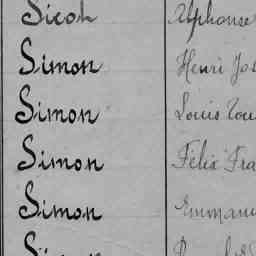 Sicot Alphonse
Simon Henri Jos
Simon Louis
Simon Félix Fra
Simon Emmanu